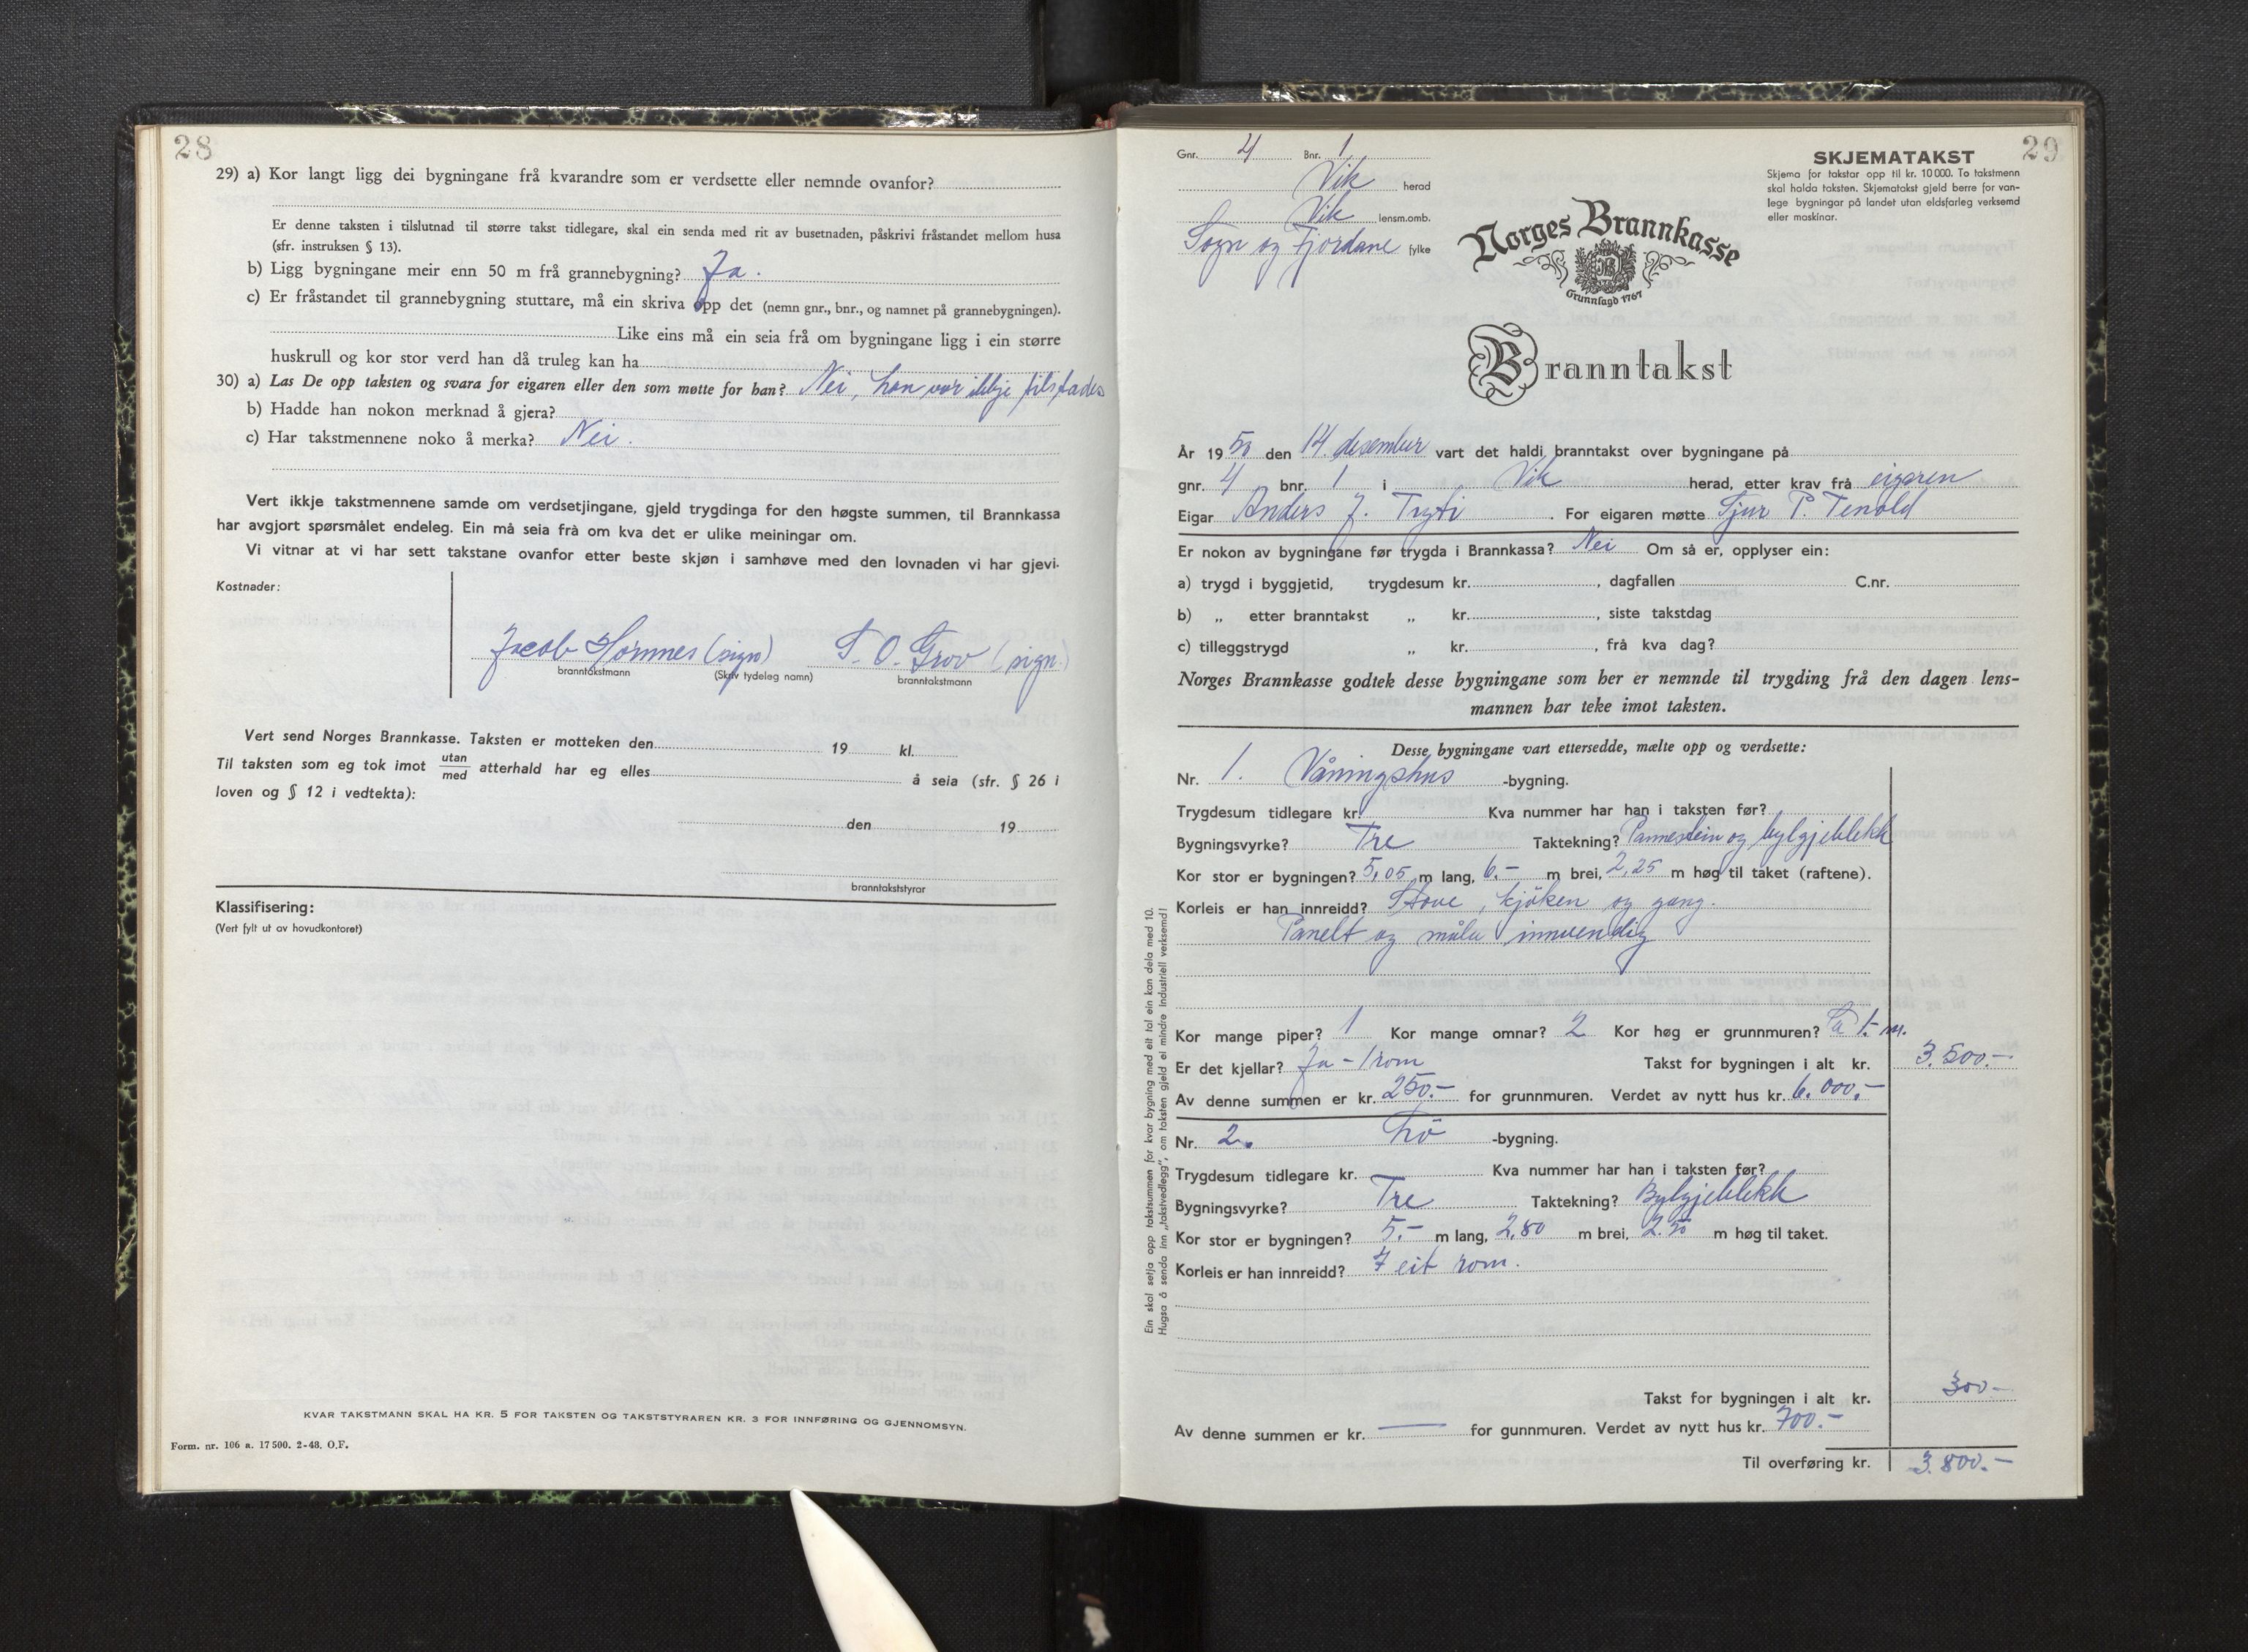 28
29) a) Kor langt ligg dei bygningane frå kvarandre som er verdsette eller nemnde ovanfor?
Er denne taksten i tilslutnad til større takst tidlegare, skal ein senda med rit av busetnaden, påskrivi fråstandet mellom husa
(sfr. instruksen § 13).
b) Ligg bygningane meir enn 50 m frå grannebygning? Ja.
c) Er fråstandet til grannebygning stuttare, må ein skriva opp det (nemn gnr., bnr., og namnet på grannebygningen).
Like eins må ein seia frå om bygningane ligg i ein større
huskrull og kor stor verd han då truleg kan ha
30) a) Las De opp taksten og svara for eigaren eller den som møtte for han? Nei, han var ikkje tilstades
b) Hadde han nokon merknad å gjera?
c) Har takstmennene noko å merka? Nei.
Vert ikkje takstmennene samde om verdsetjingane, gjeld trygdinga for den høgste summen, til Brannkassa
har avgjort spørsmålet endeleg. Ein må seia frå om kva det er ulike meiningar om.
Vi vitnar at vi har sett takstane ovanfor etter beste skjøn i samhøve med den lovnaden vi har gjevi.
Kostnader:
Jacob Hornnes (sign) T. O. Grov (sign.)
branntakstmann (Skriv tydeleg namn) branntakstmann
Vert send Norges Brannkasse. Taksten er motteken den 19 kl.
Til taksten som eg tok imot utan/med atterhald har eg elles å seia (sfr. § 26 i
loven og § 12 i vedtekta):
den 19
branntakststyrar
Klassifisering:
(Vert fylt ut av hovudkontoret)
KVAR TAKSTMANN SKAL HA KR. 5 FOR TAKSTEN OG TAKSTSTYRAREN KR. 3 FOR INNFØRING OG GJENNOMSYN.
Form. nr. 106 a. 17 500. 2-48. O.F.
29
Gnr. 4 Bnr. 1
Vik herad
Vik lensm.omb.
Sogn og Fjordane fylke
SKJEMATAKST
Skjema for takstar opp til kr. 10 000. To takstmenn
skal halda taksten. Skjematakst gjeld berre for van-
lege bygningar på landet utan eldsfarleg verksemd
eller maskinar.
Norges Brannkasse
Grunnlagd 1767
Branntakst
År 1950 den 14. desember vart det haldi branntakst over bygningane på
gnr. 4 bnr. 1 i Vik herad, etter krav frå eigaren
Eigar Anders J. Tryti. For eigaren møtte Sjur P. Tenold
Er nokon av bygningane før trygda i Brannkassa? Nei Om så er, opplyser ein:
a) trygd i byggjetid, trygdesum kr. , dagfallen C.nr.
b) „ etter branntakst „ kr. , siste takstdag
c) tilleggstrygd „ kr. , frå kva dag?
Norges Brannkasse godtek desse bygningane som her er nemnde til trygding frå den dagen lens-
mannen har teke imot taksten.
Desse bygningane vart ettersedde, mælte opp og verdsette:
Nr. 1. Våningshus -bygning.
Trygdesum tidlegare kr. Kva nummer har han i taksten før?
Bygningsvyrke? Tre Taktekning? Pannestein og bylgjeblekk
Kor stor er bygningen? 5,05 m lang, 6.- m brei, 2,25 m høg til taket (raftene).
Korleis er han innreidd? Stove, kjøken og gang.
Panelt og måla innvendig
Kor mange piper? 1 Kor mange omnar? 2 Kor høg er grunnmuren? Ca 1.- m.
Er det kjellar? Ja - 1 rom Takst for bygningen i alt kr. 3.500.-
Av denne summen er kr. 250.- for grunnmuren. Verdet av nytt hus kr. 6.000.-
Nr. 2. -bygning.
Trygdesum tidlegare kr. Kva nummer har han i taksten før?
Bygningsvyrke? Tre Taktekning? Bylgjeblekk
Kor stor er bygningen? 5.- m lang, 2,80 m brei, 2.50 m høg til taket.
Korleis er han innreidd? I eit rom.
Takst for bygningen i alt kr. 300.-
Av denne summen er kr. — for gunnmuren. Verdet av nytt hus kr. 700.-
Til overføring kr. 3.800.-
Ein skal setja opp takstsummen for kvar bygning med eit tal ein kan dela med 10.
Hugsa å senda inn „takstvedlegg", om taksten gjeld ei mindre industriell verksemd!